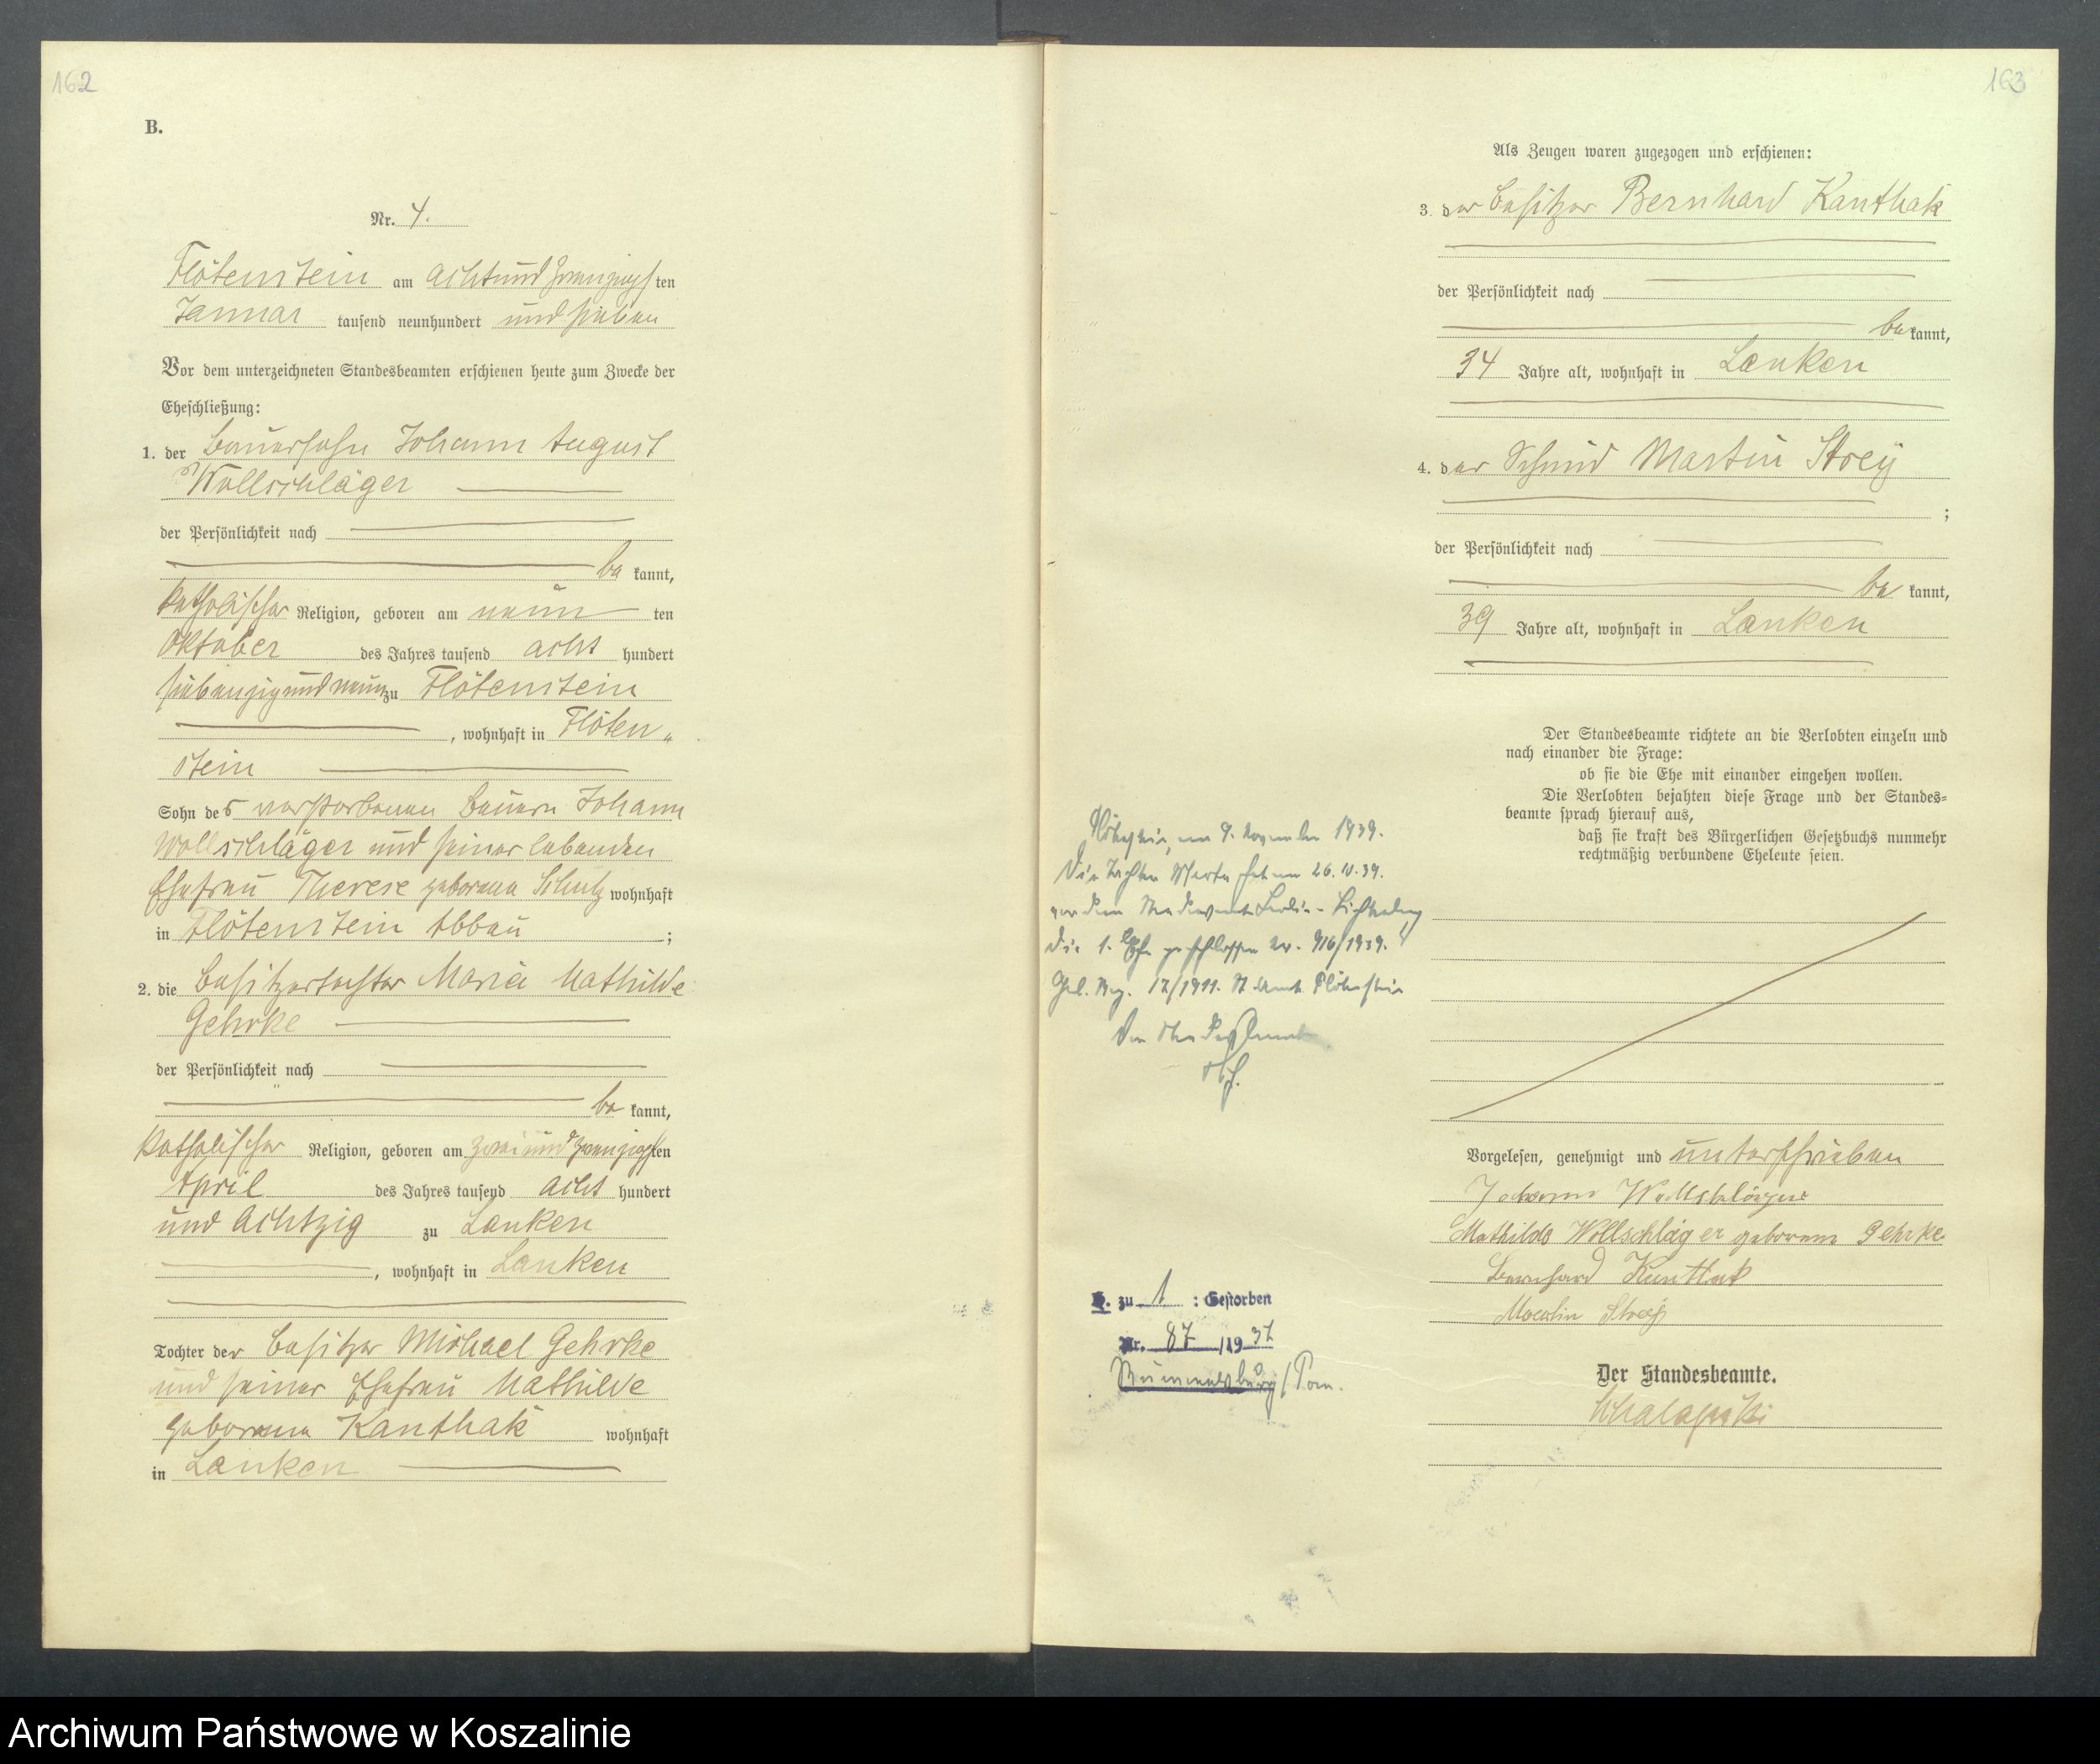 162
B.
Nr. 4.
Flötenstein am achtundzwanzigsten
Januar tausend neunhundert und sieben
Vor dem unterzeichneten Standesbeamten erschienen heute zum Zwecke der
Eheschließung:
1. der Bauersohn Johann August
Wollschläger
der Persönlichkeit nach
be kannt,
katholischer Religion, geboren am neun ten
Oktober des Jahres tausend acht hundert
siebenzig und neun zu Flötenstein
, wohnhaft in Flöten„
stein
Sohn des verstorbenen Bauern Johann
Wollschläger und seiner lebenden
Ehefrau Therese geborene Schulz wohnhaft
in Flötenstein Abbau ;
2. die Besitzertochter Maria Mathilde
Gehrke
der Persönlichkeit nach
be kannt,
katholischer Religion, geboren am zweiundzwanzigsten
April des Jahres tausend acht hundert
und achtzig zu Lanken
, wohnhaft in Lanken
Tochter der Besitzer Michael Gehrke
und seiner Ehefrau Mathilde
geborene Kanthak wohnhaft
in Lanken
163
Als Zeugen waren zugezogen und erschienen:
3. der Besitzer Bernhard Kanthak
der Persönlichkeit nach
be kannt,
34 Jahre alt, wohnhaft in Lanken
4. der Schmid Martin Strey
;
der Persönlichkeit nach
be kannt,
39 Jahre alt, wohnhaft in Lanken
Der Standesbeamte richtete an die Verlobten einzeln und
nach einander die Frage:
ob sie die Ehe mit einander eingehen wollen.
Die Verlobten bejahten diese Frage und der Standes=
beamte sprach hierauf aus,
daß sie kraft des Bürgerlichen Gesetzbuchs nunmehr
rechtmäßig verbundene Eheleute seien.
Flötenstein, am 9. November 1939.
Die Tochter Marta hat am 26.10.39.
vor dem Standesamt Berlin-Lichtenberg
die 1. Ehe geschlossen Nr. 916/1939.
Geb. Reg. 17/1911. St. Amt Flötenstein
Der Standesbeamte
Vorgelesen, genehmigt und unterschrieben
Johann Wollschläger
Mathilde Wollschläger geborene Gehrke
Bernhard Kanthak
Martin Strey
H. zu 1 : Gestorben
Nr. 87 /1937
Rummelsburg/Pom.
Der Standesbeamte.
Archiwum Państwowe w Koszalinie